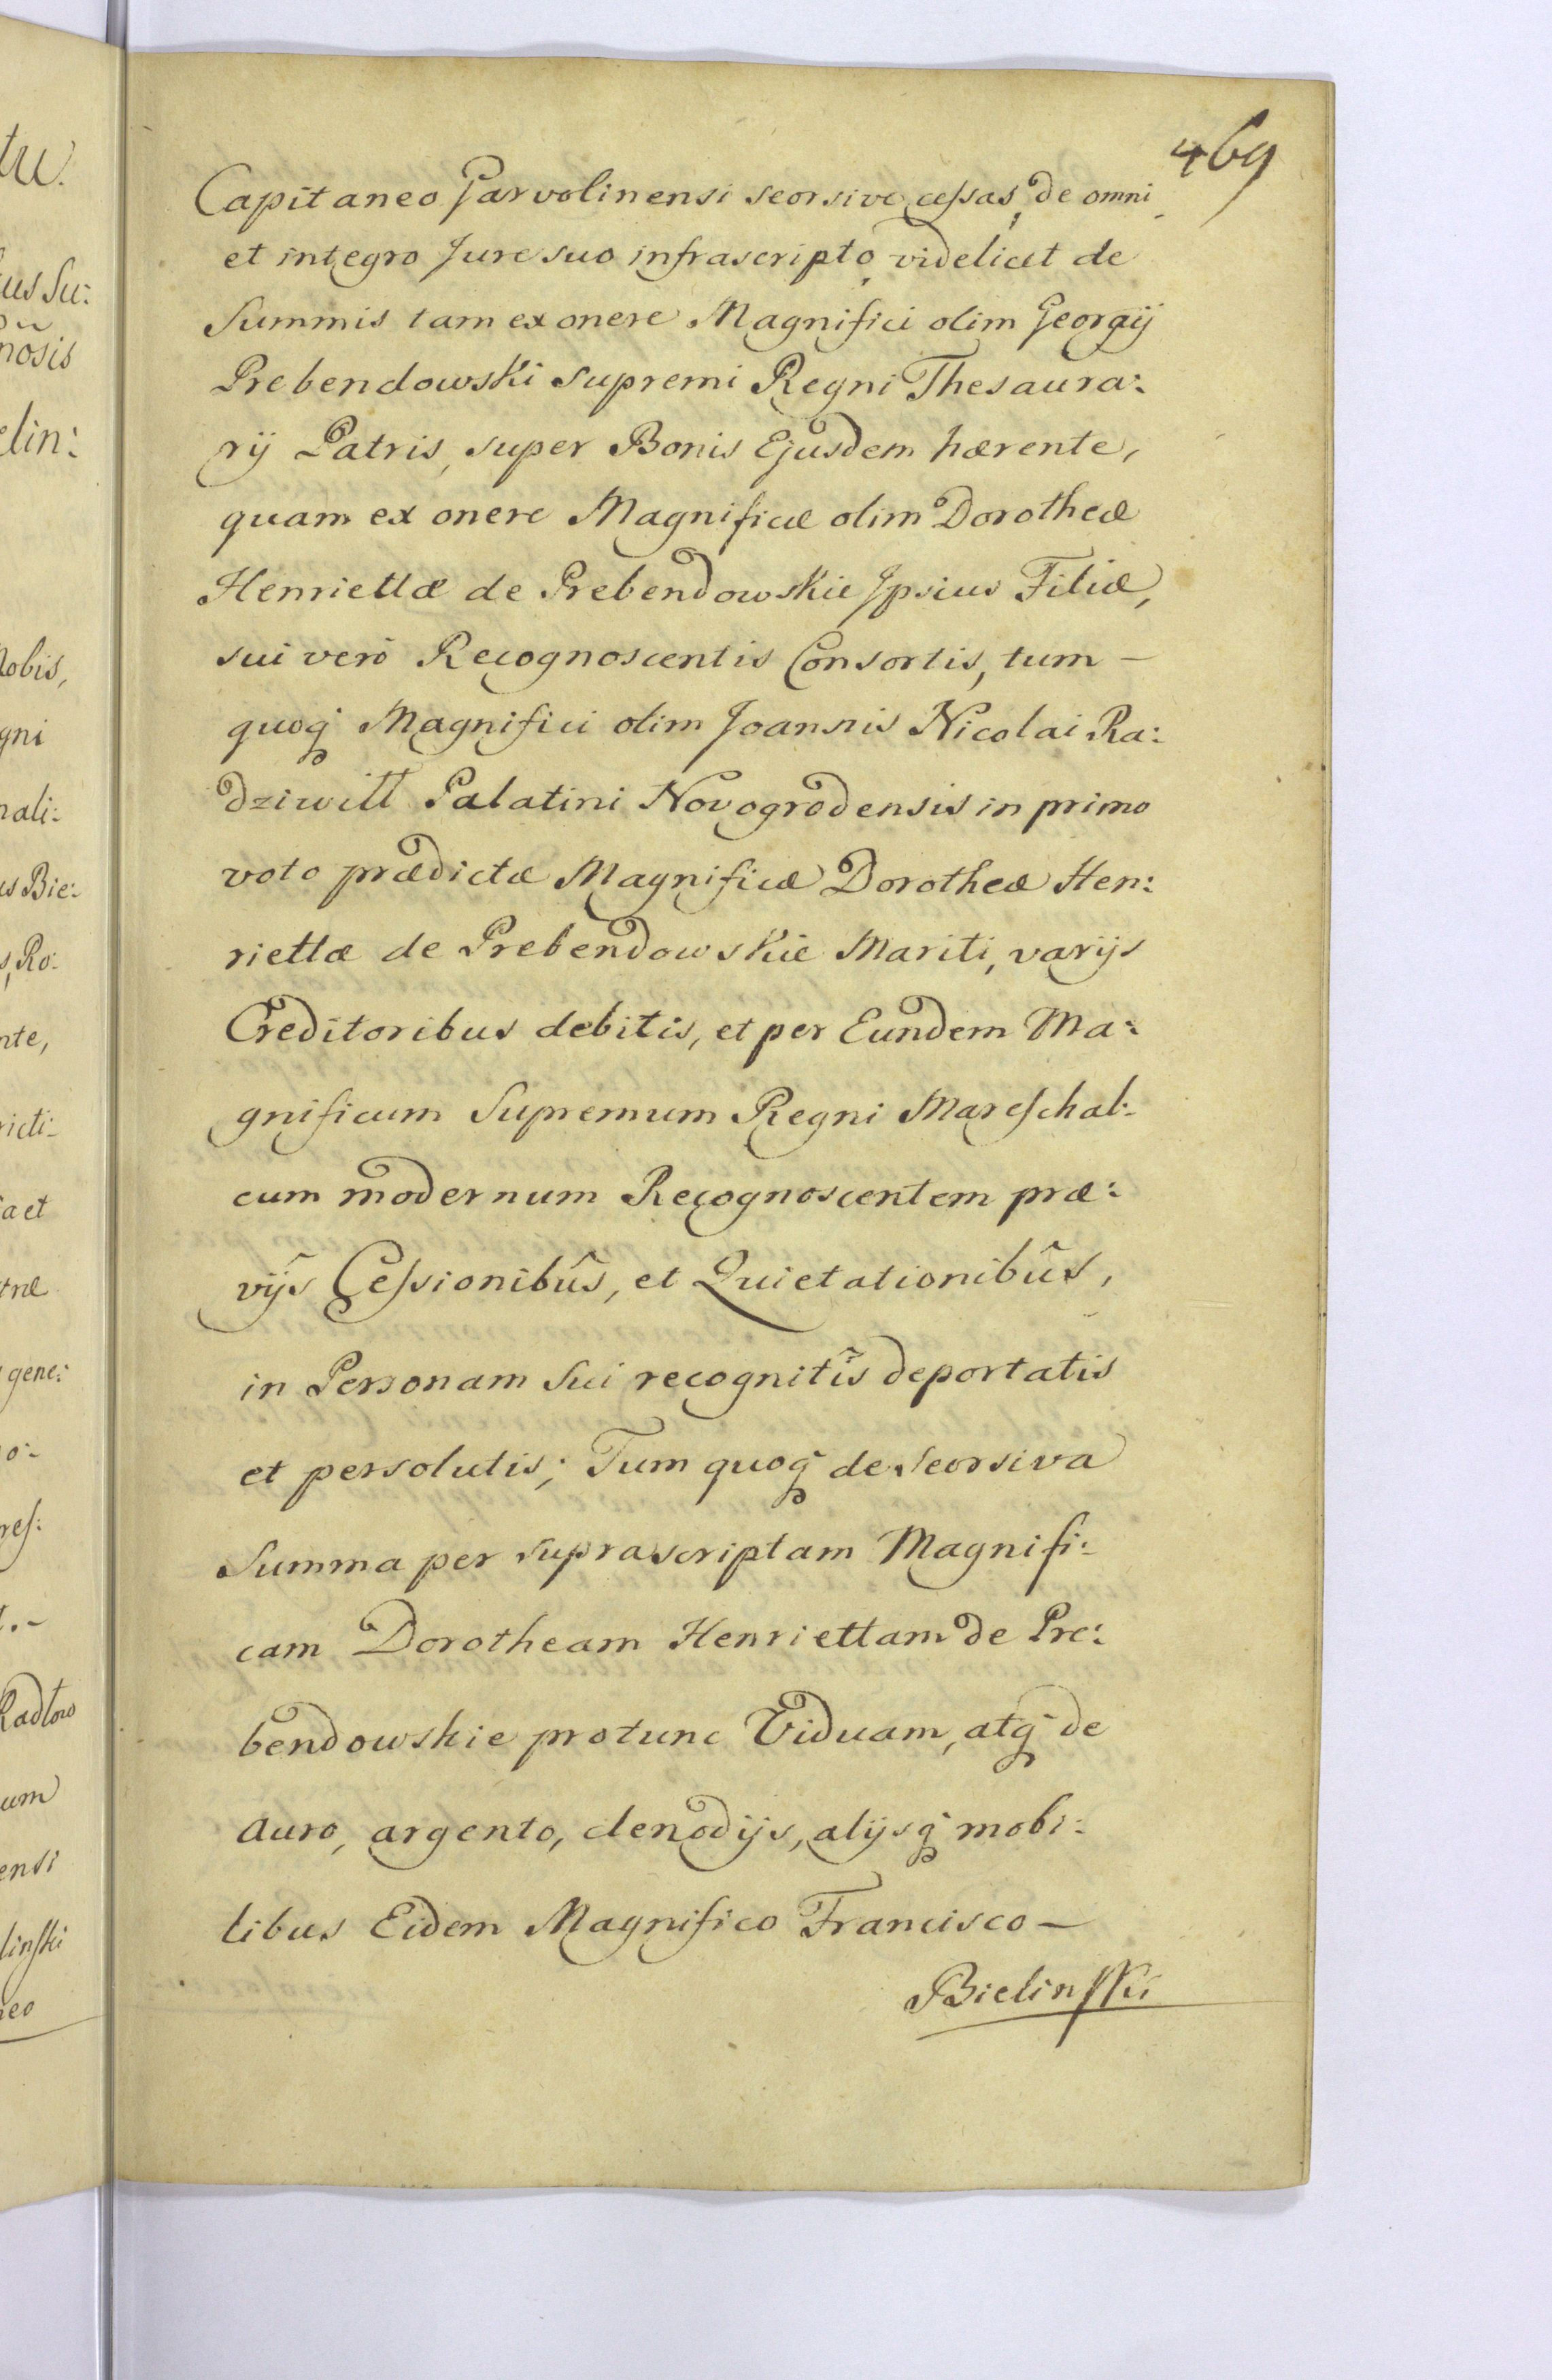 469
Capitaneo Garvolinensi seorsive cessas, de omni
et integro Jure suo infrascripto, videlicet de
Summis tam ex onere Magnifici olim Georgij
Prebendowski Supremi Regni Thesaura:
rij Patris, super Bonis Ejusdem hærente,
quam ex onere Magnificæ olim Dorotheæ
Henriettæ de Prebendowskie Ipsius Filiæ,
sui verò Recognoscentis Consortis, tum –
quoq Magnifici olim Joannis Nicolai Ra:
dziwiłł Palatini Novogrodensis in primo
voto prædictæ Magnificæ Dorotheæ Hen:
riettæ de Prebendowskie Mariti, varijs
Creditoribus debitis, et per Eundem Ma:
gnificum Supremum Regni Mareschal:
cum modernum Recognoscentem præ:
vijs Cessionibûs, et Quietationibûs,
in Personam Sui recognitîs deportatis
et persolutis; Tum quoq de Seorsiva
Summa per suprascriptam Magnifi:
cam Dorotheam Henriettam de Pre:
bendowskie protunc Viduam, atq de
Auro, argento, clenodijs, alijsq mobi:
libus Eidem Magnifico Francisco –
Bielinski
tu.
us Su:
nosis
elin:
Nobis,
gni
nali:
us Bie:
s, Ro:
nte,
ricti:
a et
rnæ
gene:
o:
res:
Radłow
um
ensi
linski
neo